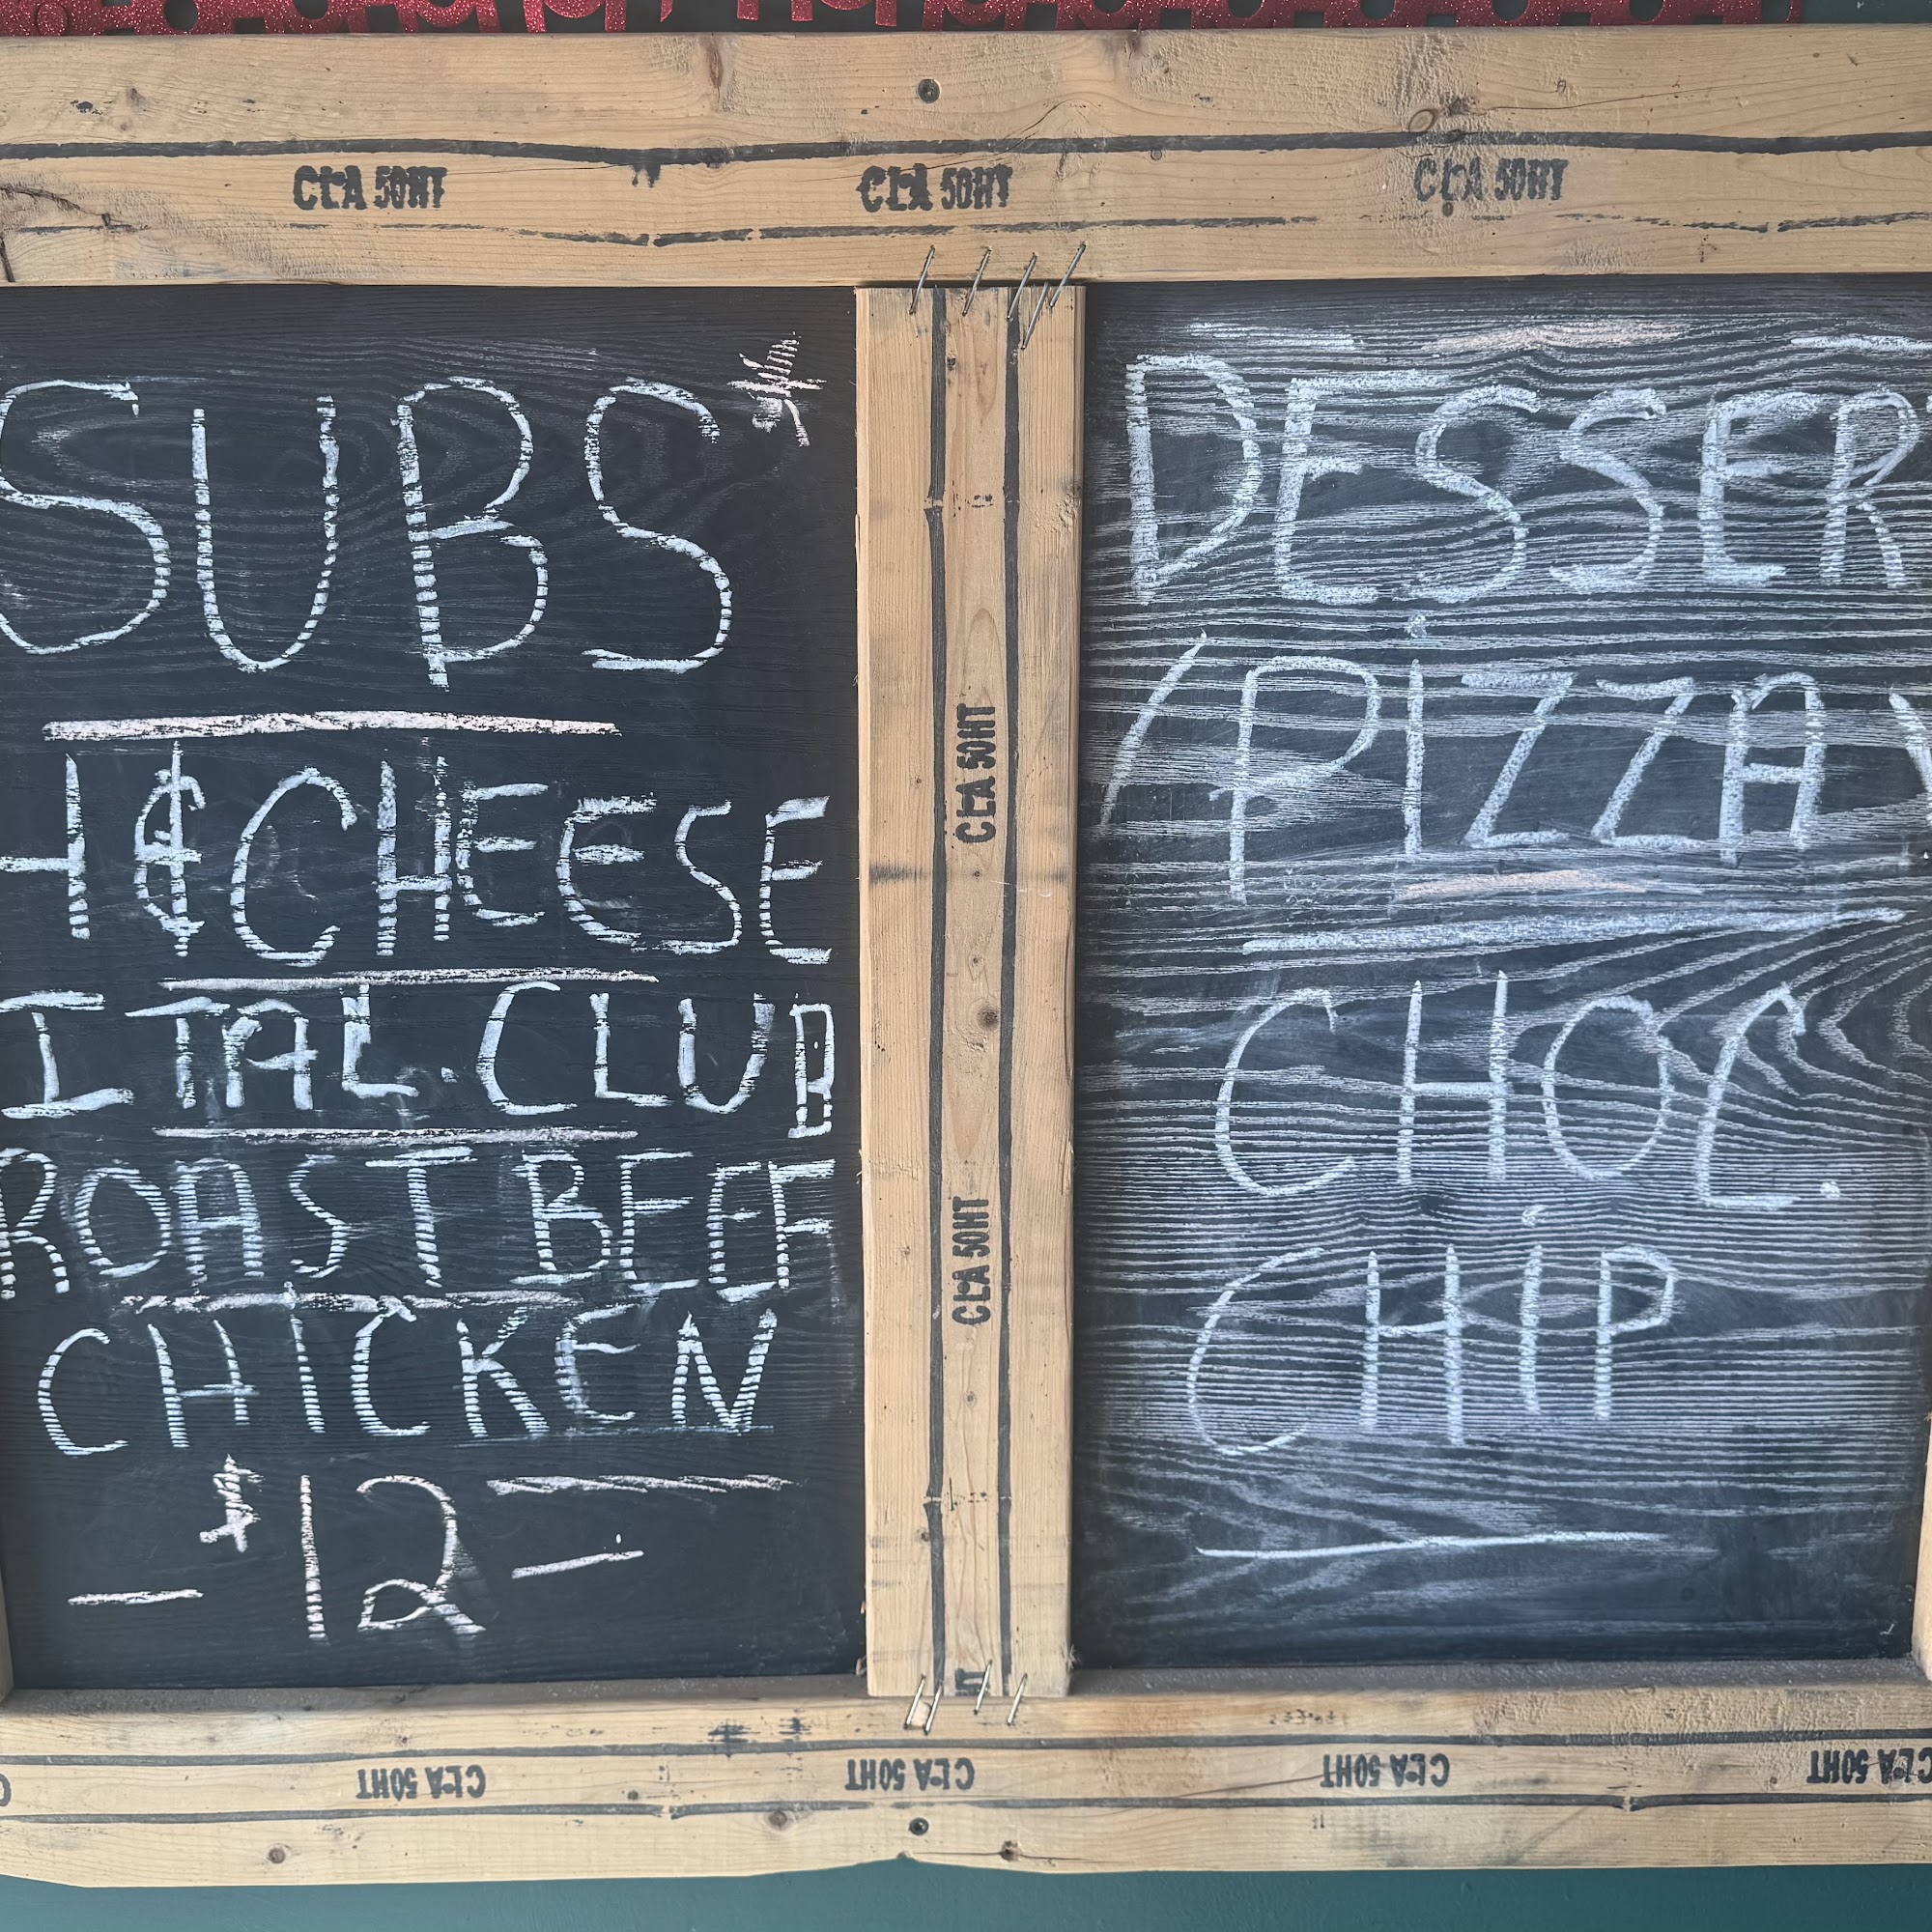 CLA 50HT CLA 50HT CLA 50HT
SUBS*
H & CHEESE
ITAL. CLUB
ROAST BEEF
CHICKEN
- $12 -
CLA 50HT
CLA 50HT
DESSER
(PIZZA)
CHOC.
CHIP
CLA 50HT CLA 50HT CLA 50HT CLA 50HT